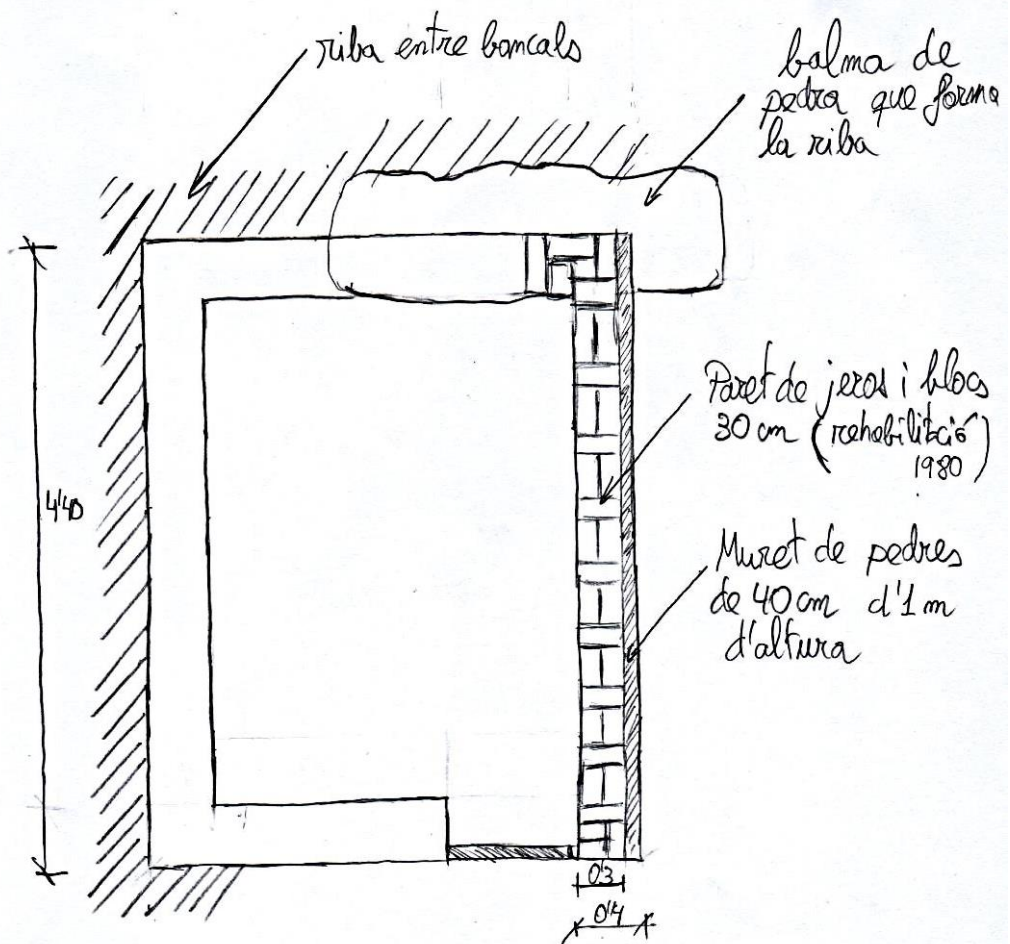 riba entre bancals
balma de
pedra que forma
la riba
4'40
Paret de jeros i blocs
30 cm (rehabilitció
1980)
Muret de pedres
de 40 cm d'1 m
d'altura
0'3
0'4